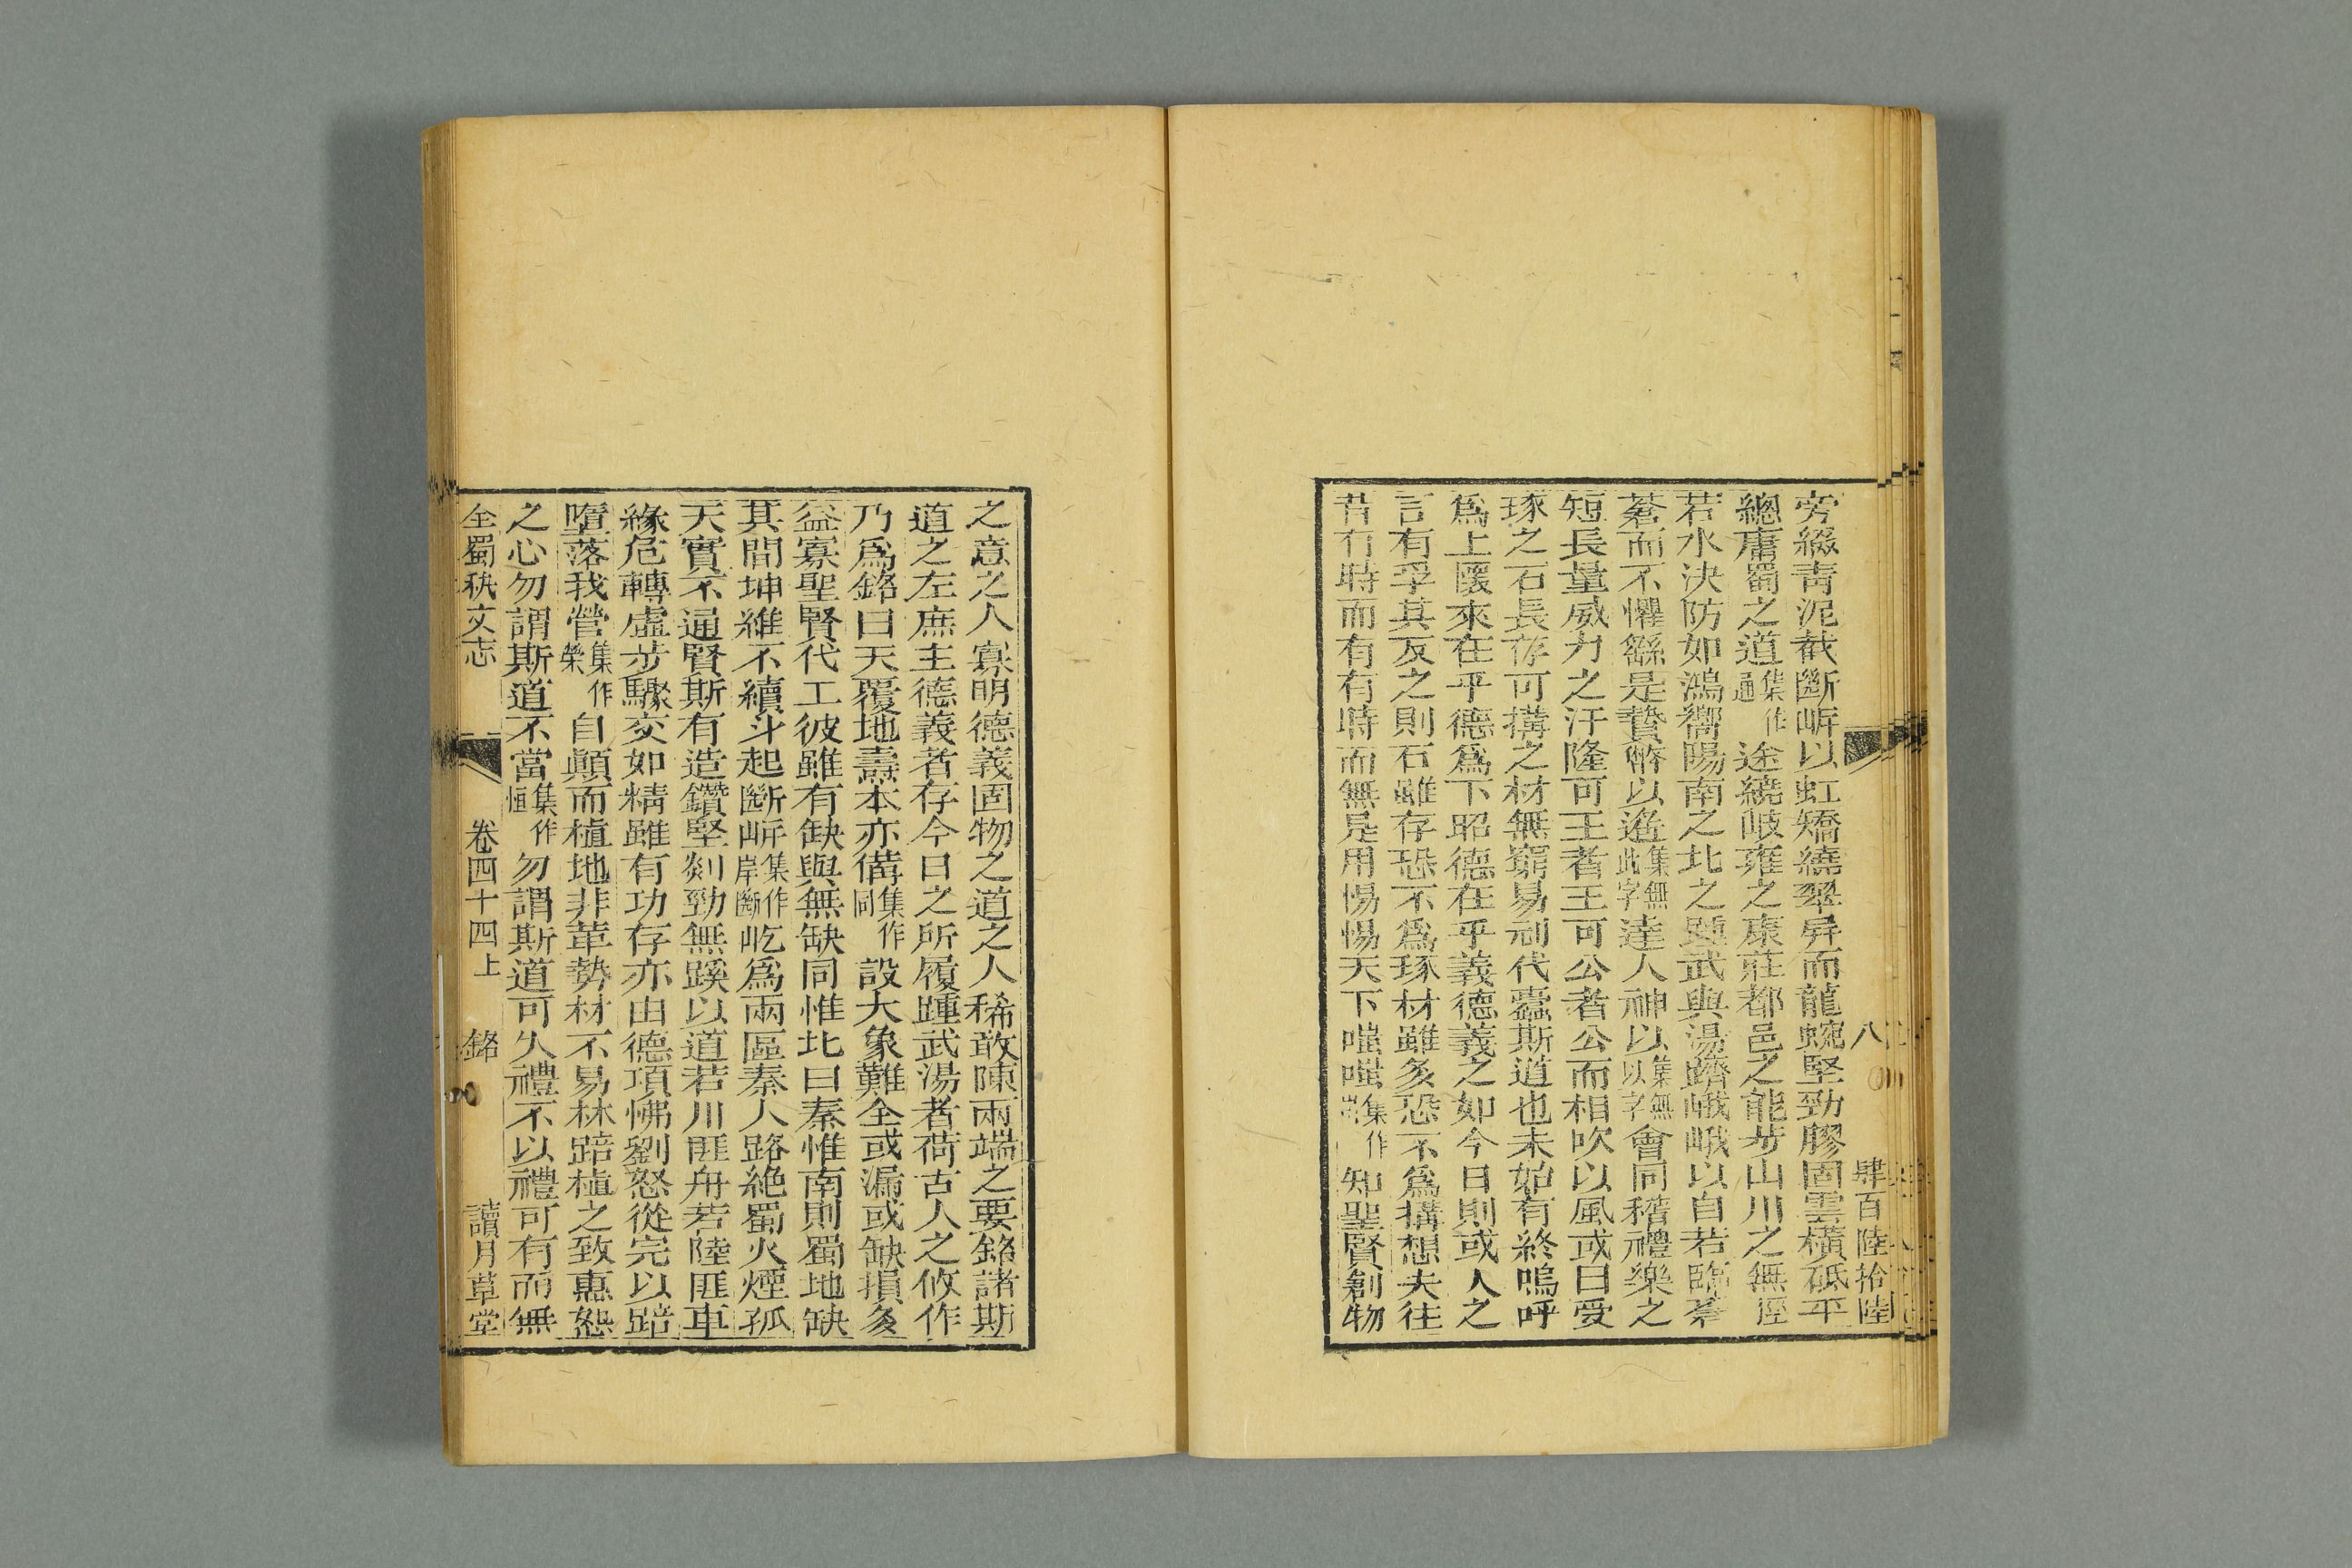 八 肆百陸拾陸
旁綴靑泥截斷㟁以虹矯繞翠屛而龍蜿堅勁膠固雲橫砥平
總庸蜀之道集作通途繞岐雍之康莊都邑之能步山川之無陘
若水决防如鴻嚮陽南之北之踵武與湯躋峨峨以自若臨蒼
蒼而不懼繇是贄幣以遙集無此字達人神以集無以字會同稽禮樂之
短長量威力之汙隆可王者王可公者公而相吹以風或曰受
琢之石長存可搆之材無窮易刓代蠹斯道也未始有終嗚呼
爲上匽來在乎德爲下昭德在乎義德義之如今日則或人之
言有孚其反之則石雖存恐不爲琢材雖多恐不爲搆想夫往
昔有時而有有時而無是用愓愓天下嗤嗤集作知聖賢創物
之意之人寡明德義固物之道之人稀敢陳兩端之要銘諸斯
道之左庶主德義者存今日之所履踵武湯者荷古人之攸作
乃爲銘曰天覆地壽本亦備集作同設大象難全或漏或缺損多
益寡聖賢代工彼雖有缺與無缺同惟北曰秦惟南則蜀地缺
其間坤維不續斗起斷㟁集作岸斷屹爲兩區秦人路絕蜀火煙孤
天實不通賢斯有造鑽堅剡勁無蹊以道若川匪舟若陸匪車
緣危轉虛步驟交如精雖有功存亦由德項怫劉怒從完以踣
墮落我營集作縈自顛而植地非革勢材不易林踣植之致惪怒
之心勿謂斯道不當集作恒勿謂斯道可久禮不以禮可有而無
全蜀秇文志 卷四十四上 銘 讀月草堂